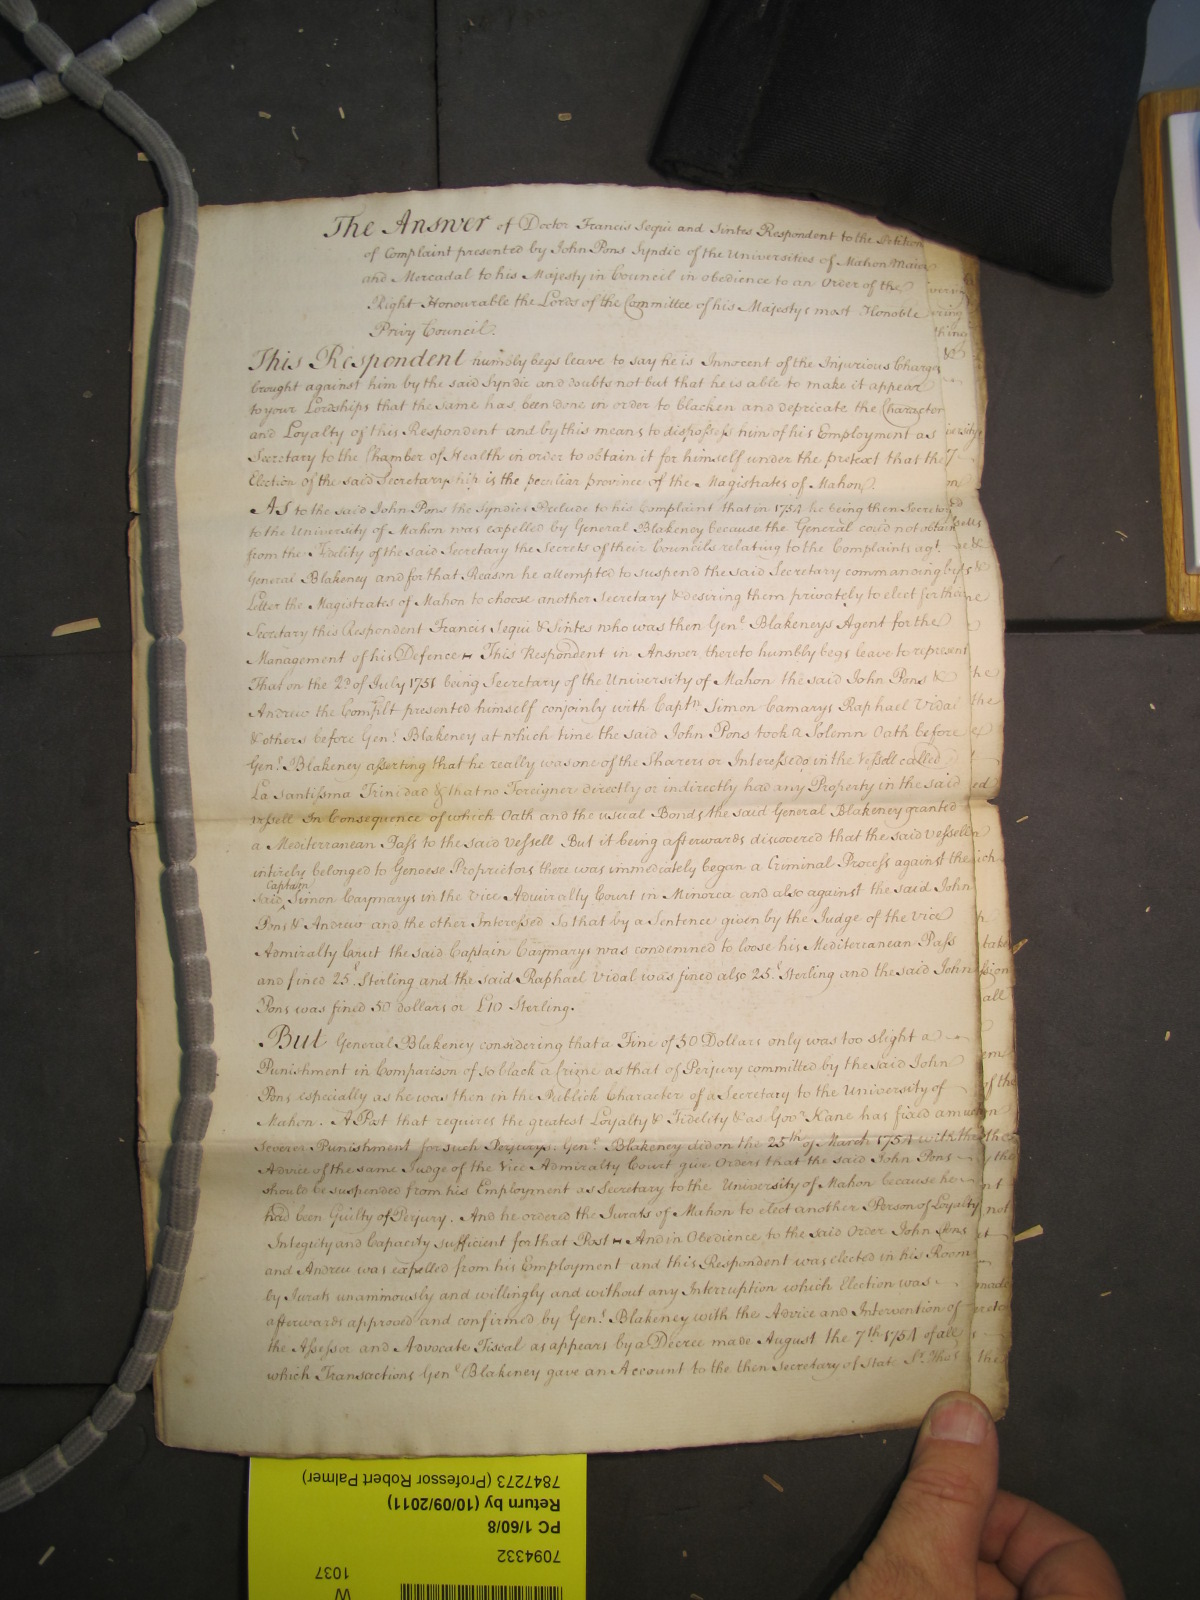 The Answer of Doctor Francis Sequi and Sintes Respondent to the Petition
of Complaint presented by John Pons Syndic of the Universities of Mahon Maior
and Mercadal to his Majesty in Council in obedience to an Order of the
Right Honourable the Lords of the Committee of his Majestys most Honoble
Privy Council.
This Respondent humbly begs leave to say he is Innocent of the Injurious Charges
brought against him by the said Syndic and doubts not but that he is able to make it appear
to your Lordships that the same has been done in order to blacken and depricate the Character
and Loyalty of this Respondent and by this means to dispossess him of his Employment as
Secretary to the Chamber of Health in order to obtain it for himself under the pretext that the
Election of the said Secretaryship is the peculiar province of the Magistrates of Mahon.
As to the said John Pons the Syndics Prelude to his Complaint that in 1754 he being then Secretary
to the University of Mahon was expelled by General Blakeney because the General could not obtain
from the Fidelity of the said Secretary the Secrets of their Councils relating to the Complaints agt.
General Blakeney and for that Reason he attempted to suspend the said Secretary commanding by
Letter the Magistrates of Mahon to choose another Secretary & desiring them privately to elect for their
Secretary this Respondent Francis Sequi & Sintes who was then Genl. Blakeneys Agent for the
Management of his Defence This Respondent in Answer thereto humbly begs leave to represent
That on the 2d. of July 1751 being Secretary of the University of Mahon the said John Pons &
Andreu the Complt presented himself conjoinly with Captn. Simon Camarys Raphael Vidal
& others before Genl. Blakeney at which time the said John Pons took a Solemn Oath before
Genl. Blakeney asserting that he really was one of the Sharers or Interessedo in the Vessell called
La Santissma Trinidad & that no Foreigner directly or indirectly had any Property in the said
vessell In Consequence of which Oath and the usual Bonds the said General Blakeney granted
a Mediterranean Pass to the said Vessell. But it being afterwards discovered that the said vessell
intirely belonged to Genoese Proprietors there was immediately began a Criminal Process against the
Captain
said Simon Caymarys in the Vice Admiralty Court in Minorca and also against the said John
Pons & Andreu and the other Interessed So that by a Sentence given by the Judge of the Vice
Admiralty Court the said Captain Caymarys was condemned to loose his Mediterranean Pass
and fined 25£. Sterling and the said Raphael Vidal was fined also 25£. Sterling and the said John
Pons was fined 50 dollars or £10 Sterling.
But General Blakeney considering that a Fine of 50 Dollars only was too slight a
Punishment in Comparison of so black a Crime as that of Perjury committed by the said John
Pons especially as he was then in the Publick Character of a Secretary to the University of
Mahon. A Post that requires the greatest Loyalty & Fidelity & as Govr. Kane has fixed a much
severer Punishment for such Perjurys. Genl. Blakeney did on the 25th of March 1754 with the
Advice of the same Judge of the Vice Admiralty Court give Orders that the said John Pons
should be suspended from his Employment as Secretary to the University of Mahon because he
had been Guilty of Perjury. And he ordered the Jurats of Mahon to elect another Person of Loyalty
Integrity and Capacity sufficient for that Post And in Obedience to the said Order John Pons
and Andreu was expelled from his Employment and this Respondent was elected in his Room
by Jurats unanimously and willingly and without any Interruption which Election was
afterwards approved and confirmed by Genl. Blakeney with the Advice and Intervention of
the Assessor and Advocate Fiscal as appears by a Decree made August the 7th 1754 of all
which Transactions Genl Blakeney gave an Account to the then Secretary of State Sr. Thos
7847273 (Professor Robert Palmer)
Return by (10/09/2011)
PC 1/60/8
7094332
1037
W